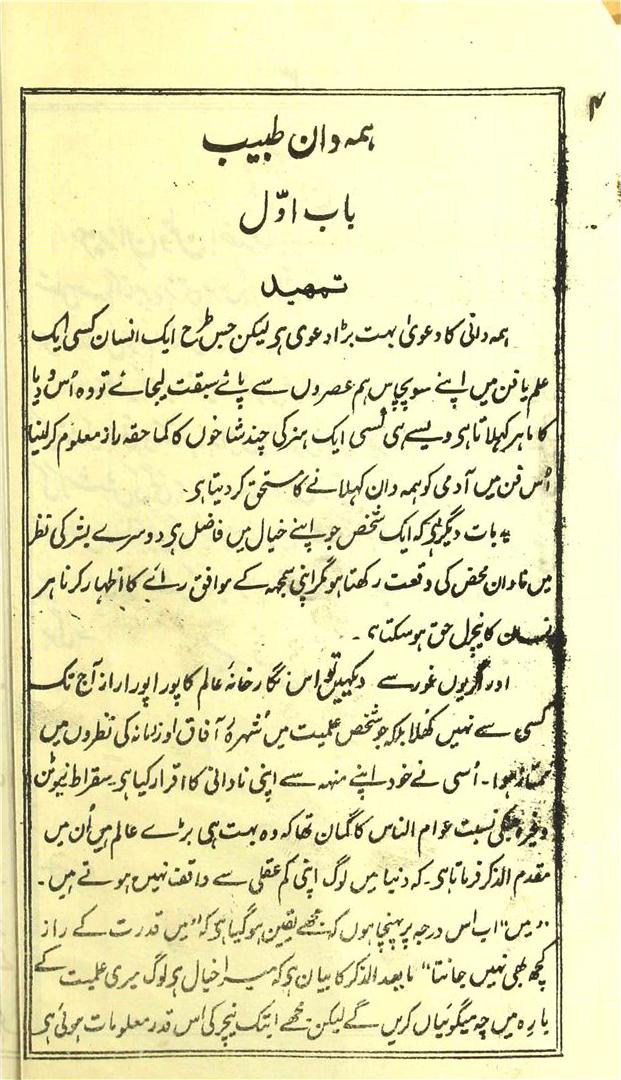 ۴
ہمہ دان طبیب
باب اوّل
تمہید
ہمہ دانی کا دعویٰ بہت بڑا دعوی ہی لیکن جس طرح ایک انسان کسی ایک
علم یا فن میں اپنے سو پچاس ہم عصروں سے پائے سبقت لیجائے تو وہ اُس وِدیا
کا ماہر کہلاتا ہی ویسے ہی کسی ایک ہنر کی چند شاخوں کا کما حقہ راز معلوم کر لینا
اُس فن میں آدمی کو ہمہ دان کہلانے کا مستحق کر دیتا ہی۔
یہ بات دیگر ہی کہ ایک شخص جو اپنے خیال میں فاضل ہی دوسرے بشر کی نظر
میں نادان محض کی وقعت رکھتا ہو مگر اپنی سمجہہ کے موافق رائے کا اظہار کرنا ہر
انسان کا نیچرل حق ہو سکتا ہی۔
اور اگر یوں غور سے دیکہیں تو اس نگار خانۂ عالم کا پورا پورا راز آج تک
کسی سے نہیں کُھلا بلکہ جو شخص علمیت میں شہرۂ آفاق اور زمانہ کی نظروں میں
ممتاز ہوا۔ اُسی نے خود اپنے منہہ سے اپنی نادانی کا اقرار کیا ہی۔ سقراط نیوٹن
وغیرہ جنکی نسبت عوام الناس کا گمان تھا کہ وہ بہت ہی بڑے عالم ہیں اُن میں
مقدم الذکر فرماتا ہی۔ کہ دنیا میں لوگ اپنی کم عقلی سے واقف نہیں ہوتے ہیں۔
"میں" اب اس درجہ پر پہنچا ہوں کہ مجھے یقین ہو گیا ہی کہ "میں قدرت کے راز
کچھ بھی نہیں جانتا" مابعد الذکر کا بیان ہی کہ میرا خیال ہی لوگ میری علمیت کے
بارہ میں چہ میگوئیاں کریں گے لیکن مجھے ابتک نیچر کی اس قدر معلومات ہوئی ہی